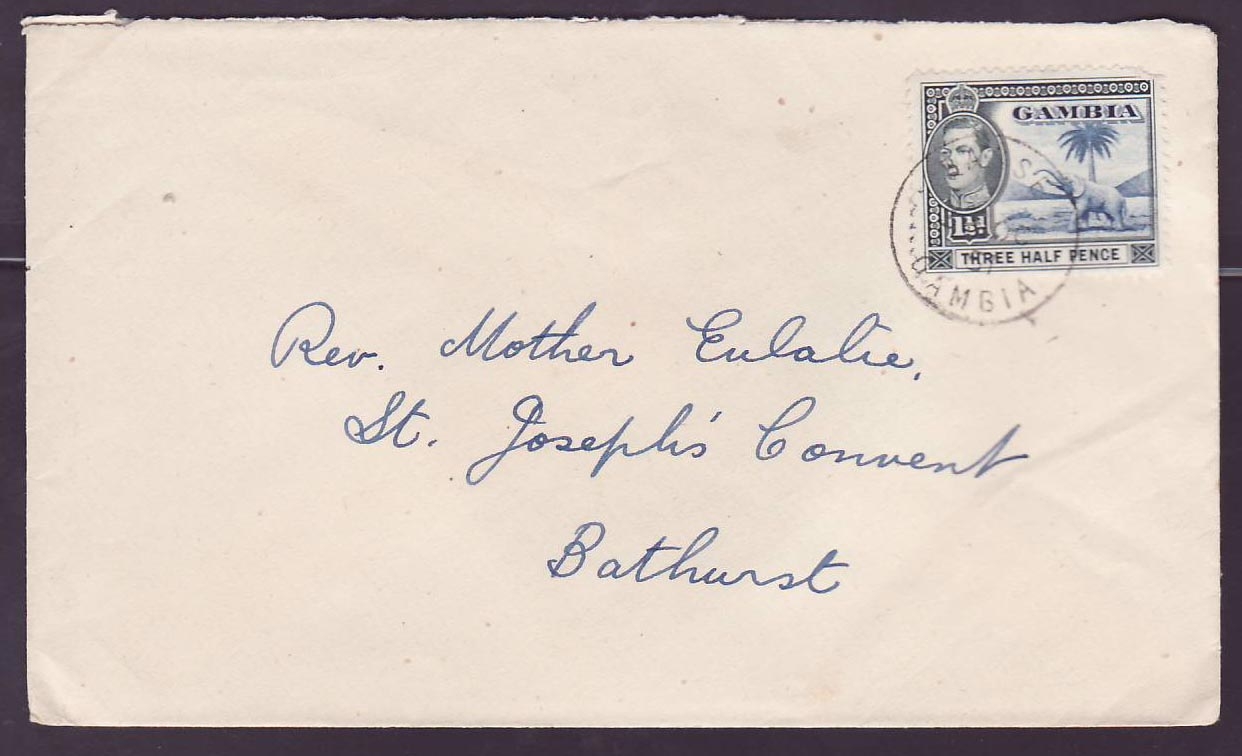 GAMBIA
1½d
THREE HALF PENCE
GAMBIA
Rev. Mother Eulalie,
St. Joseph's Convent
Bathurst